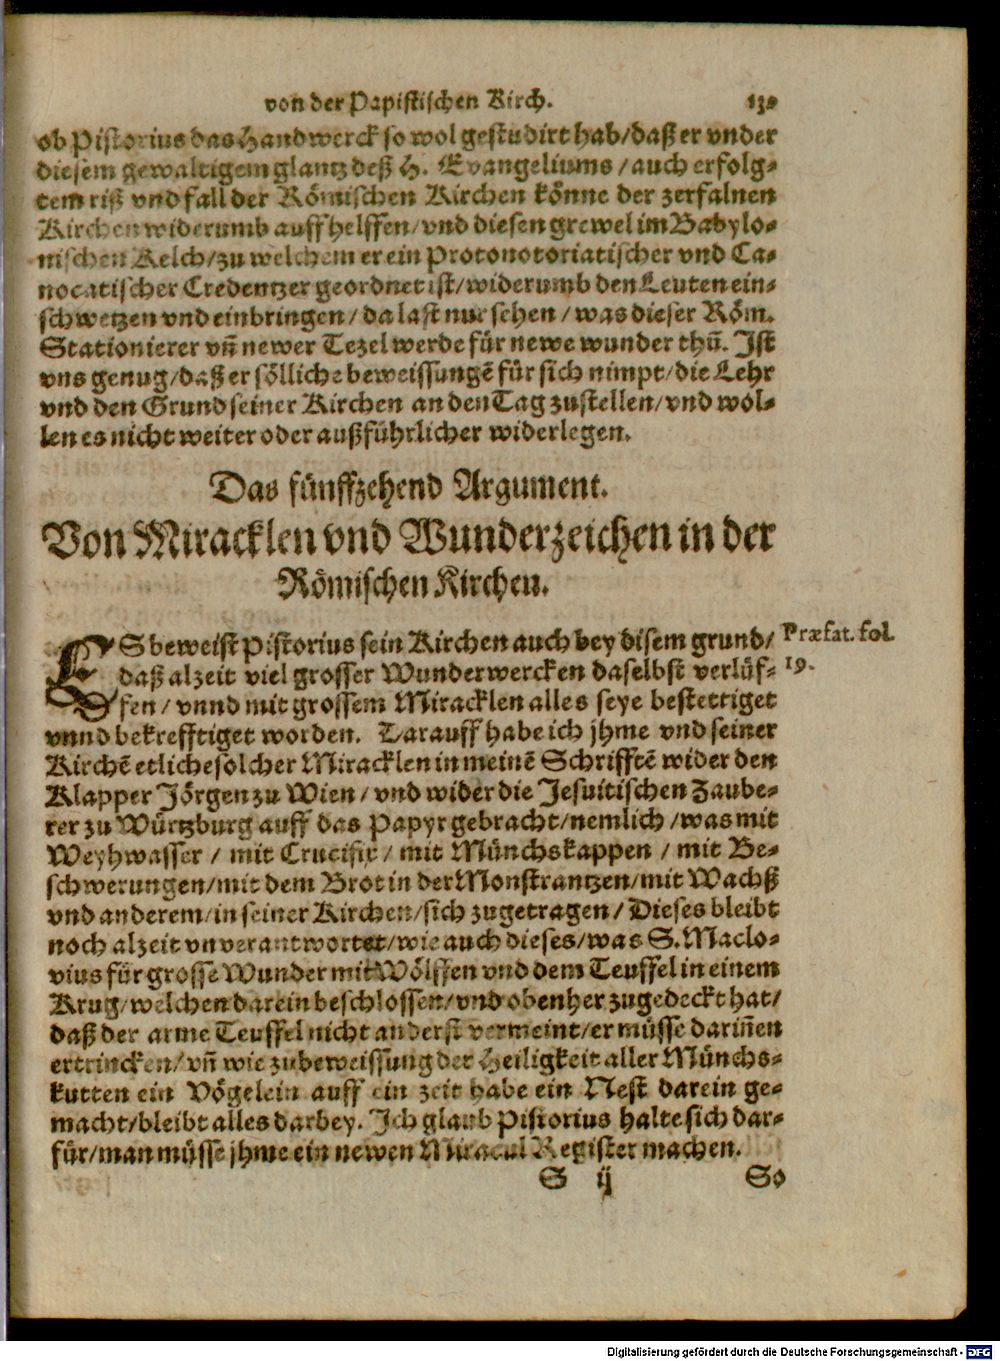 von der Papistischen Kirch. 130
ob Pistorius das Handwerck so wol gestudirt hab/daß er vnder
diesem gewaltigem glantz deß H. Evangeliums/auch erfolg-
tem riß vnd fall der Römischen Kirchen könne der zerfalnen
Kirchen widerumb auffhelffen/vnd diesen grewel im Babylo-
nischen Kelch/zu welchem er ein Protonotoriatischer vnd Ca-
nocatischer Credentzer geordnet ist/widerumb den Leuten ein-
schwetzen vnd einbringen/da last nur sehen/was dieser Röm.
Stationierer vñ newer Tezel werde für newe wunder thũ. Ist
vns genug/daß er sölliche beweissungẽ für sich nimpt/die Lehr
vnd den Grund seiner Kirchen an den Tag zustellen/vnd wöl-
len es nicht weiter oder außführlicher widerlegen.
Das fünffzehend Argument.
Von Miracklen vnd Wunderzeichen in der
Römischen Kirchen.
ES beweist Pistorius sein Kirchen auch bey disem grund/ Præfat. fol.
daß alzeit viel grosser Wunderwercken daselbst verlüf- 19.
fen/vnnd mit grossem Miracklen alles seye bestettiget
vnnd bekrefftiget worden. Darauff habe ich jhme vnd seiner
Kirchẽ etliche solcher Miracklen in meinẽ Schrifftẽ wider den
Klapper Jörgen zu Wien/vnd wider die Jesuitischen Zaube-
rer zu Würtzburg auff das Papyr gebracht/nemlich/was mit
Weyhwasser/mit Crucifix/mit Münchskappen/mit Be-
schwerungen/mit dem Brot in der Monstrantzen/mit Wachß
vnd anderem/in seiner Kirchen/sich zugetragen/Dieses bleibt
noch alzeit vnverantwortet/wie auch dieses/was S. Maclo-
vius für grosse Wunder mit Wölffen vnd dem Teuffel in einem
Krug/welchen darein beschlossen/vnd oben her zugedeckt hat/
daß der arme Teuffel nicht anderst vermeint/er müsse dariñen
ertrincken/vñ wie zubeweissung der Heiligkeit aller Münchs-
kutten ein Vögelein auff ein zeit habe ein Nest darein ge-
macht/bleibt alles darbey. Ich glaub Pistorius halte sich dar-
für/man müsse jhme ein newen Miracul Register machen.
S ij So
Digitalisierung gefördert durch die Deutsche Forschungsgemeinschaft - DFG